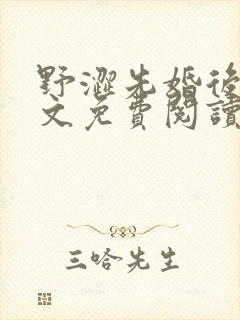 野澀先婚後
文免費閱讀
三哈先生